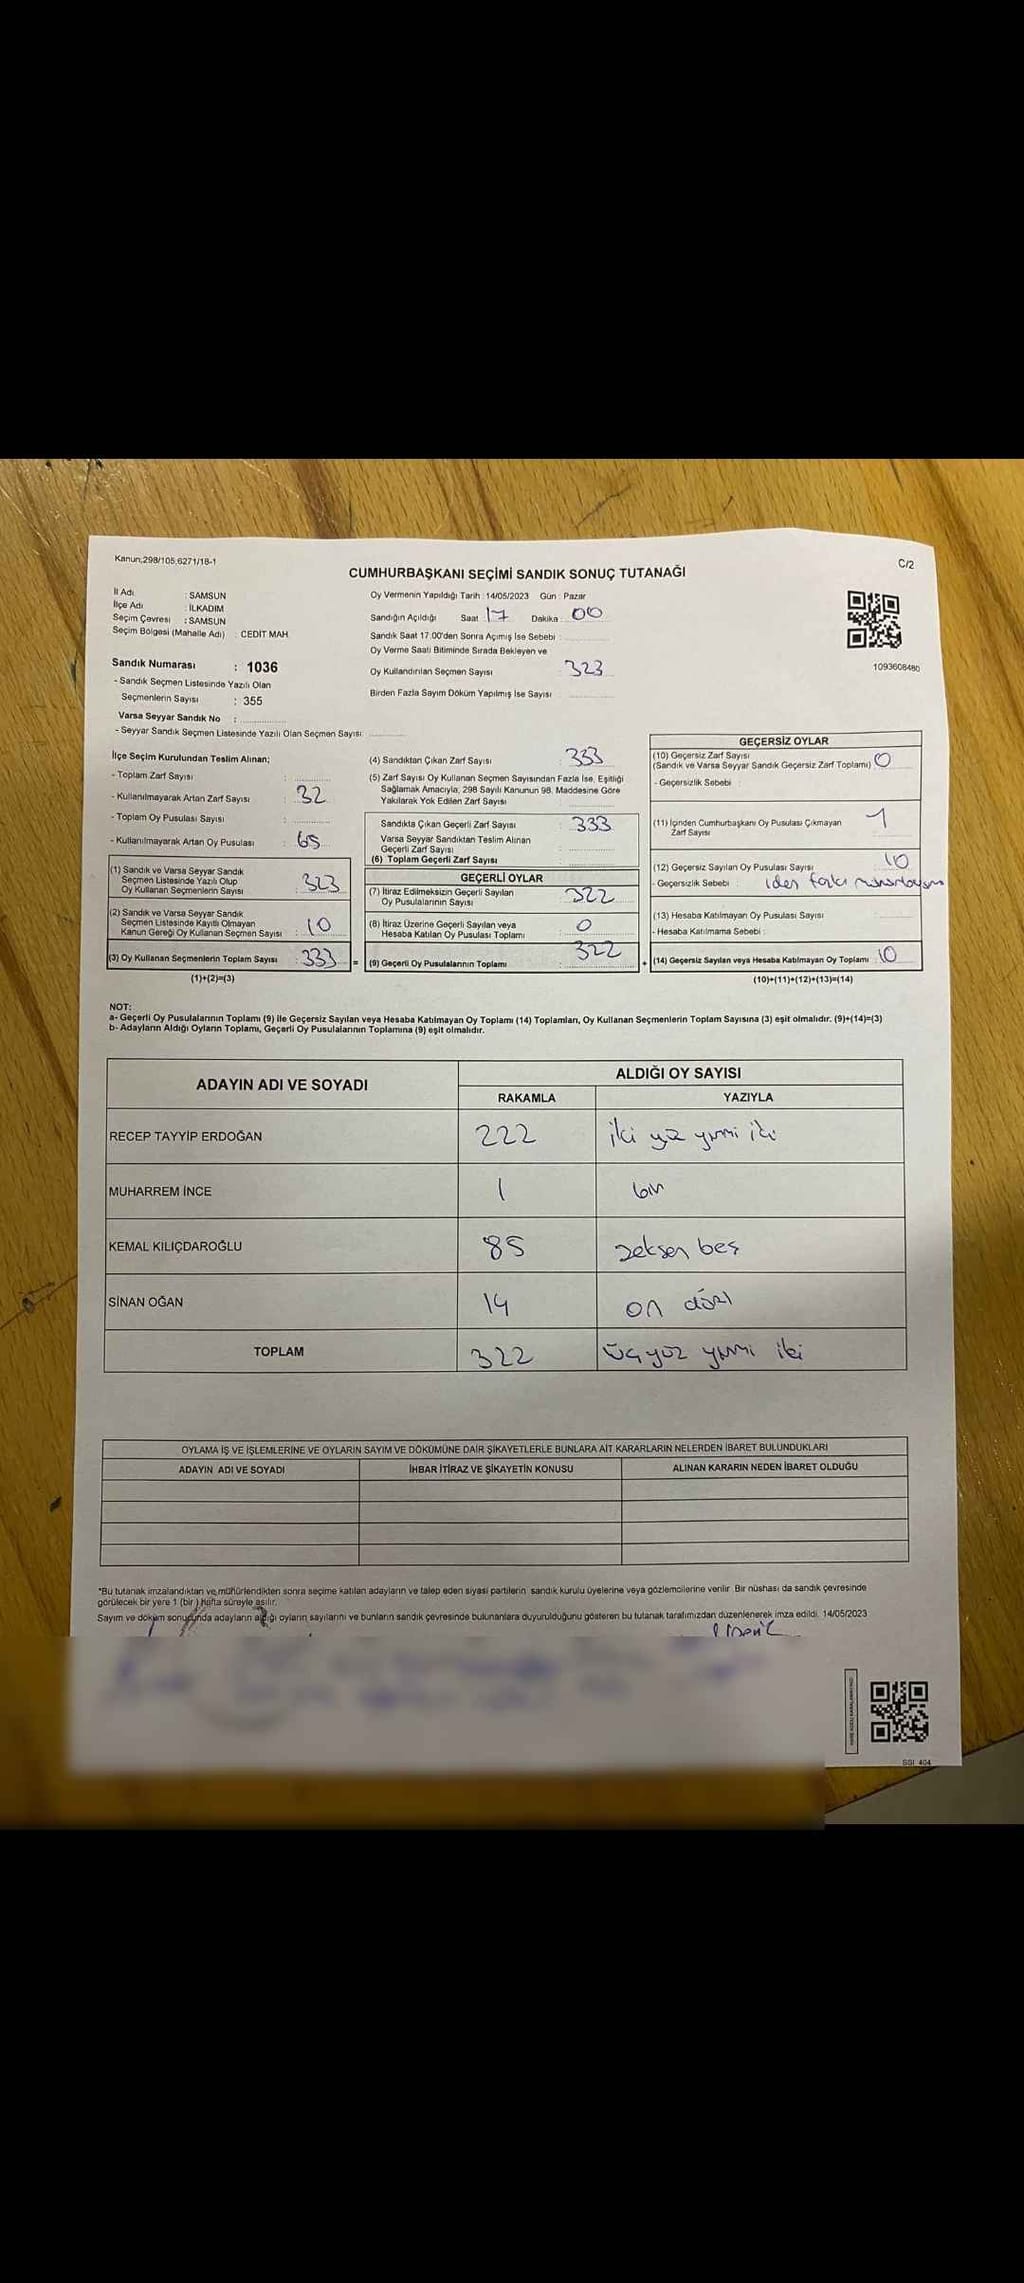 Kanun;298/105,6271/18-1
C/2
CUMHURBAŞKANI SEÇİMİ SANDIK SONUÇ TUTANAĞI
İl Adı : SAMSUN
İlçe Adı : İLKADIM
Seçim Çevresi : SAMSUN
Seçim Bölgesi (Mahalle Adı) : CEDİT MAH.
Sandık Numarası : 1036
- Sandık Seçmen Listesinde Yazılı Olan
Seçmenlerin Sayısı : 355
Varsa Seyyar Sandık No :
- Seyyar Sandık Seçmen Listesinde Yazılı Olan Seçmen Sayısı:
Oy Vermenin Yapıldığı Tarih : 14/05/2023 Gün : Pazar
Sandığın Açıldığı Saat 17 Dakika : 00
Sandık Saat 17:00'den Sonra Açımış İse Sebebi :
Oy Verme Saati Bitiminde Sırada Bekleyen ve
Oy Kullandırılan Seçmen Sayısı : 323
Birden Fazla Sayım Döküm Yapılmış İse Sayısı :
1093608480
İlçe Seçim Kurulundan Teslim Alınan;
- Toplam Zarf Sayısı :
- Kullanılmayarak Artan Zarf Sayısı : 32
- Toplam Oy Pusulası Sayısı :
- Kullanılmayarak Artan Oy Pusulası : 65
(1) Sandık ve Varsa Seyyar Sandık
Seçmen Listesinde Yazılı Olup
Oy Kullanan Seçmenlerin Sayısı : 323
(2) Sandık ve Varsa Seyyar Sandık
Seçmen Listesinde Kayıtlı Olmayan
Kanun Gereği Oy Kullanan Seçmen Sayısı : 10
(3) Oy Kullanan Seçmenlerin Toplam Sayısı : 333 =
(1)+(2)=(3)
(4) Sandıktan Çıkan Zarf Sayısı : 333
(5) Zarf Sayısı Oy Kullanan Seçmen Sayısından Fazla İse, Eşitliği
Sağlamak Amacıyla, 298 Sayılı Kanunun 98. Maddesine Göre
Yakılarak Yok Edilen Zarf Sayısı :
Sandıkta Çıkan Geçerli Zarf Sayısı : 333
Varsa Seyyar Sandıktan Teslim Alınan
Geçerli Zarf Sayısı :
(6) Toplam Geçerli Zarf Sayısı :
GEÇERLİ OYLAR
(7) İtiraz Edilmeksizin Geçerli Sayılan
Oy Pusulalarının Sayısı : 322
(8) İtiraz Üzerine Geçerli Sayılan veya
Hesaba Katılan Oy Pusulası Toplamı : 0
(9) Geçerli Oy Pusulalarının Toplamı : 322 +
GEÇERSİZ OYLAR
(10) Geçersiz Zarf Sayısı
(Sandık ve Varsa Seyyar Sandık Geçersiz Zarf Toplamı) : 0
- Geçersizlik Sebebi :
(11) İçinden Cumhurbaşkanı Oy Pusulası Çıkmayan
Zarf Sayısı : 1
(12) Geçersiz Sayılan Oy Pusulası Sayısı : 10
- Geçersizlik Sebebi :
(13) Hesaba Katılmayan Oy Pusulası Sayısı :
- Hesaba Katılmama Sebebi :
(14) Geçersiz Sayılan veya Hesaba Katılmayan Oy Toplamı : 10
(10)+(11)+(12)+(13)=(14)
NOT:
a- Geçerli Oy Pusulalarının Toplamı (9) ile Geçersiz Sayılan veya Hesaba Katılmayan Oy Toplamı (14) Toplamları, Oy Kullanan Seçmenlerin Toplam Sayısına (3) eşit olmalıdır. (9)+(14)=(3)
b- Adayların Aldığı Oyların Toplamı, Geçerli Oy Pusulalarının Toplamına (9) eşit olmalıdır.
ADAYIN ADI VE SOYADI ALDIĞI OY SAYISI
RAKAMLA YAZIYLA
RECEP TAYYİP ERDOĞAN 222 iki yüz yirmi iki
MUHARREM İNCE 1 bir
KEMAL KILIÇDAROĞLU 85 seksen beş
SİNAN OĞAN 14 on dört
TOPLAM 322 üçyüz yirmi iki
OYLAMA İŞ VE İŞLEMLERİNE VE OYLARIN SAYIM VE DÖKÜMÜNE DAİR ŞİKAYETLERLE BUNLARA AİT KARARLARIN NELERDEN İBARET BULUNDUKLARI
ADAYIN ADI VE SOYADI İHBAR İTİRAZ VE ŞİKAYETİN KONUSU ALINAN KARARIN NEDEN İBARET OLDUĞU
*Bu tutanak imzalandıktan ve mühürlendikten sonra seçime katılan adayların ve talep eden siyasi partilerin sandık kurulu üyelerine veya gözlemcilerine verilir. Bir nüshası da sandık çevresinde
görülecek bir yere 1 (bir) hafta süreyle asılır.
Sayım ve döküm sonucunda adayların aldığı oyların sayılarını ve bunların sandık çevresinde bulunanlara duyurulduğunu gösteren bu tutanak tarafımızdan düzenlenerek imza edildi. 14/05/2023
SSI 404